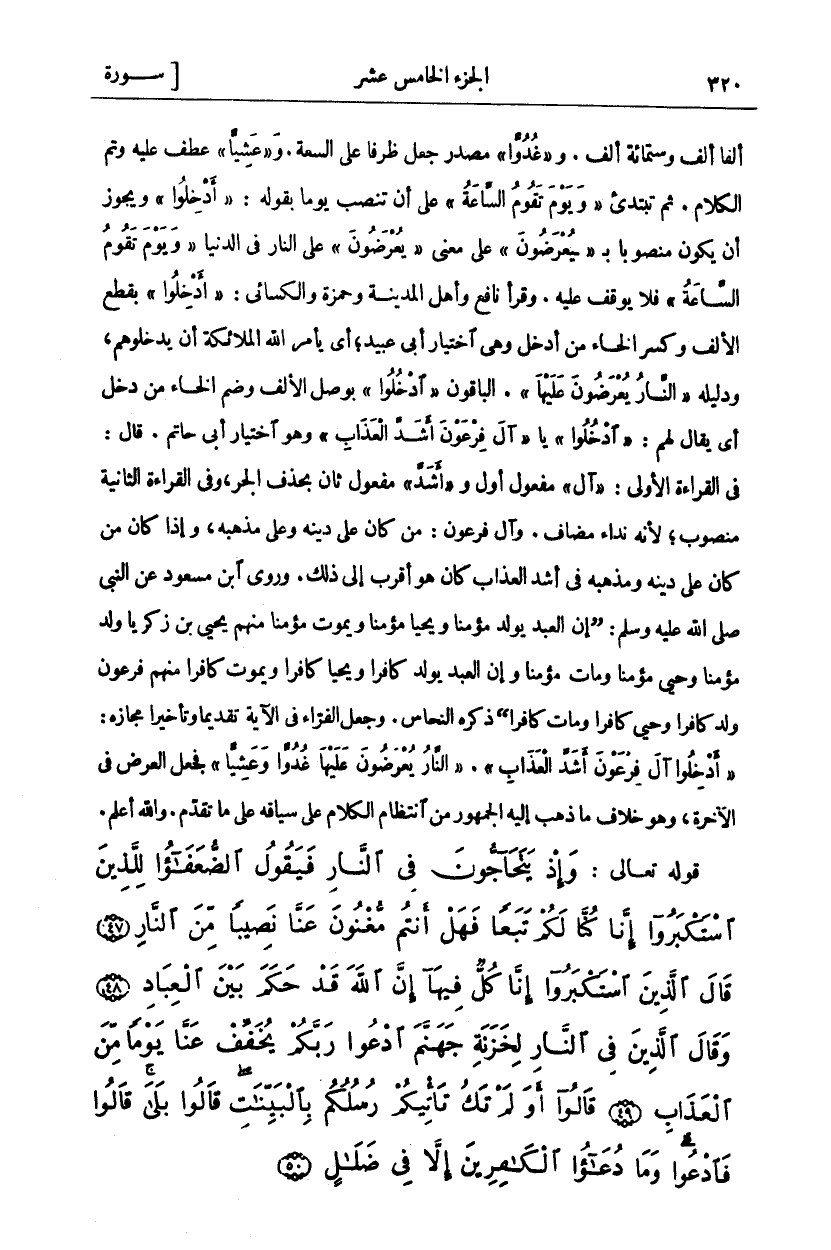 ٣٢٠ الجزء الخامس عشر [ ســـورة
ألفا ألف وستمائة ألف . و «غُدُوًّا» مصدر جعل ظرفا على السعة. وَ«عَشِيًّا» عطف عليه وتم
الكلام . ثم تبتدئ « وَيَوْمَ تَقُومُ السَّاعَةُ » على أن تنصب يوما بقوله : « أَدْخِلُوا » ويجوز
أن يكون منصوبا بـ « يُعْرَضُونَ » على معنى « يُعْرَضُونَ » على النار فى الدنيا « وَيَوْمَ تَقُومُ
السَّاعَةُ » فلا يوقف عليه . وقرأ نافع وأهل المدينـة وحمزة والكسائى : « أَدْخِلُوا » بقطع
الألف وكسر الخاء من أدخل وهى ٱختيار أبى عبيد؛ أى يأمر الله الملائكة أن يدخلوهم ،
ودليله « النَّارُ يُعْرَضُونَ عَلَيْهَا » . الباقون « ٱدْخُلُوا » بوصل الألف وضم الخـاء من دخل
أى يقال لهم : « ٱدْخُلُوا » يا « آلَ فِرْعَوْنَ أَشَدَّ الْعَذَابِ » وهو ٱختيار أبى حاتم . قال :
فى القراءة الأولى : «آل» مفعول أول و «أَشَدَّ» مفعول ثان بحذف الجر، وفى القراءة الثانية
منصوب؛ لأنه نداء مضاف . وآل فرعون : من كان على دينه وعلى مذهبه ، وإذا كان من
كان على دينه ومذهبه فى أشد العذاب كان هو أقرب إلى ذلك. وروى ٱبن مسعود عن النبى
صلى الله عليه وسلم: ”إن العبد يولد مؤمنا ويحيا مؤمنا ويموت مؤمنا منهم يحيى بن زكريا ولد
مؤمنا وحيى مؤمنا ومات مؤمنا وإن العبد يولد كافرا ويحيا كافرا ويموت كافرا منهم فرعون
ولد كافرا وحيى كافرا ومات كافرا“ ذكره النحاس. وجعل الفرّاء فى الآية تقديما وتأخيرا مجازه:
« أَدْخِلُوا آلَ فِرْعَوْنَ أَشَدَّ الْعَذَابِ » . « النَّارُ يُعْرَضُونَ عَلَيْهَا غُدُوًّا وَعَشِيًّا » فجعل العرض فى
الآخرة ، وهو خلاف ما ذهب إليه الجمهور من ٱنتظام الكلام على سياقه على ما تقدّم. والله أعلم.
قوله تعـالى : وَإِذْ يَتَحَآجُّونَ فِى ٱلنَّارِ فَيَقُولُ ٱلضُّعَفَـٰٓؤُا لِلَّذِينَ
ٱسْتَكْبَرُوٓا إِنَّا كُنَّا لَكُمْ تَبَعًا فَهَلْ أَنتُم مُّغْنُونَ عَنَّا نَصِيبًا مِّنَ ٱلنَّارِ ﴿٤٧﴾
قَالَ ٱلَّذِينَ ٱسْتَكْبَرُوٓا إِنَّا كُلٌّ فِيهَآ إِنَّ ٱللَّهَ قَدْ حَكَمَ بَيْنَ ٱلْعِبَادِ ﴿٤٨﴾
وَقَالَ ٱلَّذِينَ فِى ٱلنَّارِ لِخَزَنَةِ جَهَنَّمَ ٱدْعُوا رَبَّكُمْ يُخَفِّفْ عَنَّا يَوْمًا مِّنَ
ٱلْعَذَابِ ﴿٤٩﴾ قَالُوٓا أَوَ لَمْ تَكُ تَأْتِيكُمْ رُسُلُكُم بِٱلْبَيِّنَـٰتِ قَالُوا بَلَىٰ قَالُوا
فَٱدْعُوا وَمَا دُعَـٰٓؤُا ٱلْكَـٰفِرِينَ إِلَّا فِى ضَلَـٰلٍ ﴿٥٠﴾